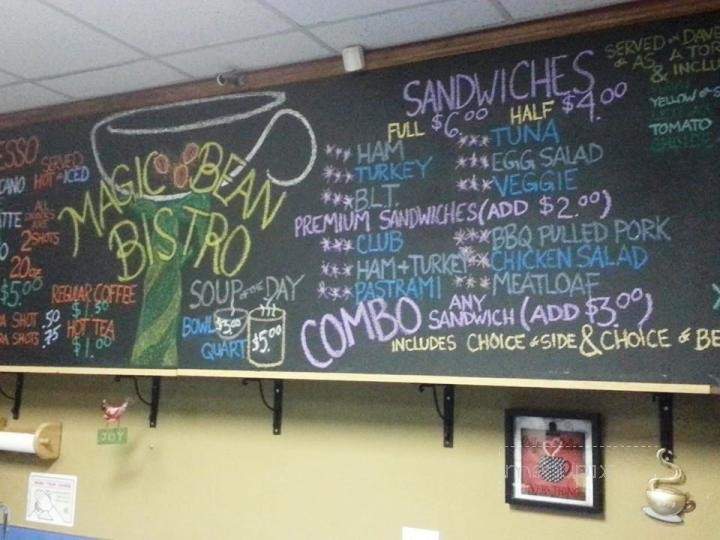 ESSO
SERVED
HOT or ICED
CANO
ATTE
ALL
2 SHOTS
20oz
$5.00
REGULAR COFFEE
$1.50
HOT TEA
$1.00
A SHOT .50
RA SHOTS .75
MAGIC BEAN
BISTRO
SOUP of the DAY
BOWL $3.00
QUART $5.00
SANDWICHES
FULL $6.00 HALF $4.00
*** HAM
*** TURKEY
*** B.L.T.
*** TUNA
*** EGG SALAD
*** VEGGIE
PREMIUM SANDWICHES (ADD $2.00)
*** CLUB
*** HAM + TURKEY
*** PASTRAMI
*** BBQ PULLED PORK
*** CHICKEN SALAD
*** MEATLOAF
COMBO ANY
SANDWICH (ADD $3.00)
INCLUDES CHOICE of SIDE & CHOICE of BE
SERVED on DAVE
AS A TOR
& INCLU
YELLOW
TOMATO
JOY